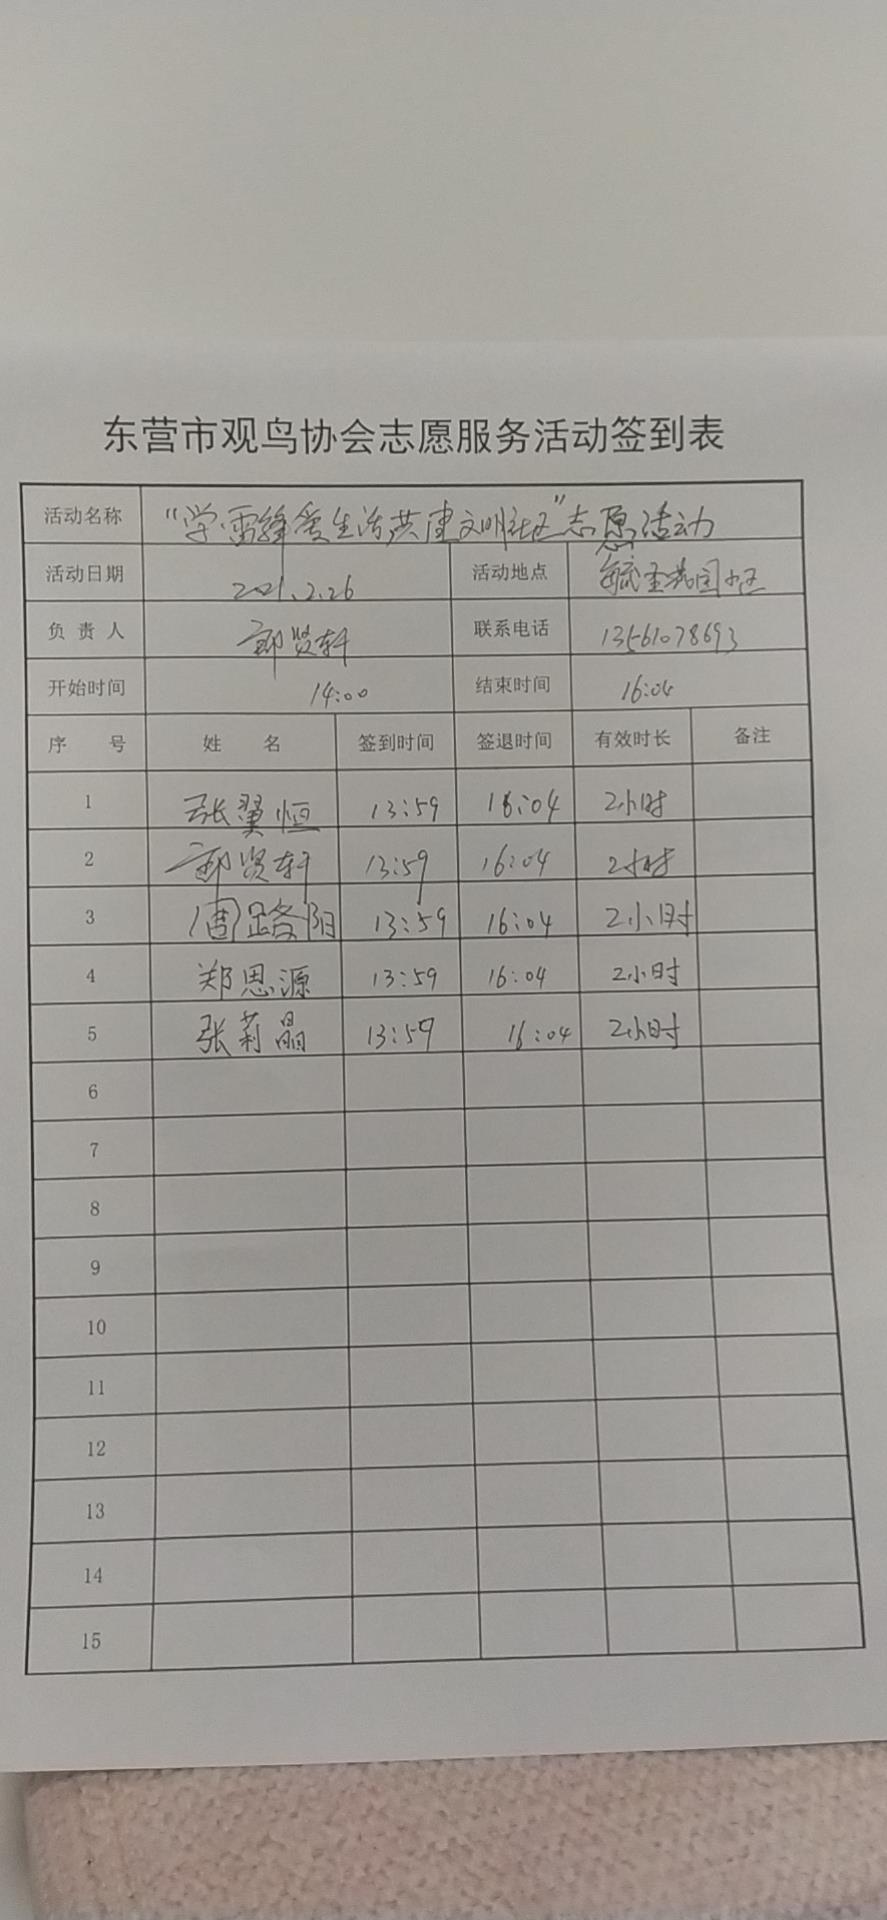 东营市观鸟协会志愿服务活动签到表
活动名称 “学雷锋爱生活共建文明社区”志愿活动
活动日期 2021.2.26 活动地点 花园小区
负责人 郭贤轩 联系电话 13561078693
开始时间 14:00 结束时间 16:04
序号 姓名 签到时间 签退时间 有效时长 备注
1 张翼恒 13:59 16:04 2小时
2 郭贤轩 13:59 16:04 2小时
3 周路阳 13:59 16:04 2小时
4 郑思源 13:59 16:04 2小时
5 张莉晶 13:59 16:04 2小时
6
7
8
9
10
11
12
13
14
15